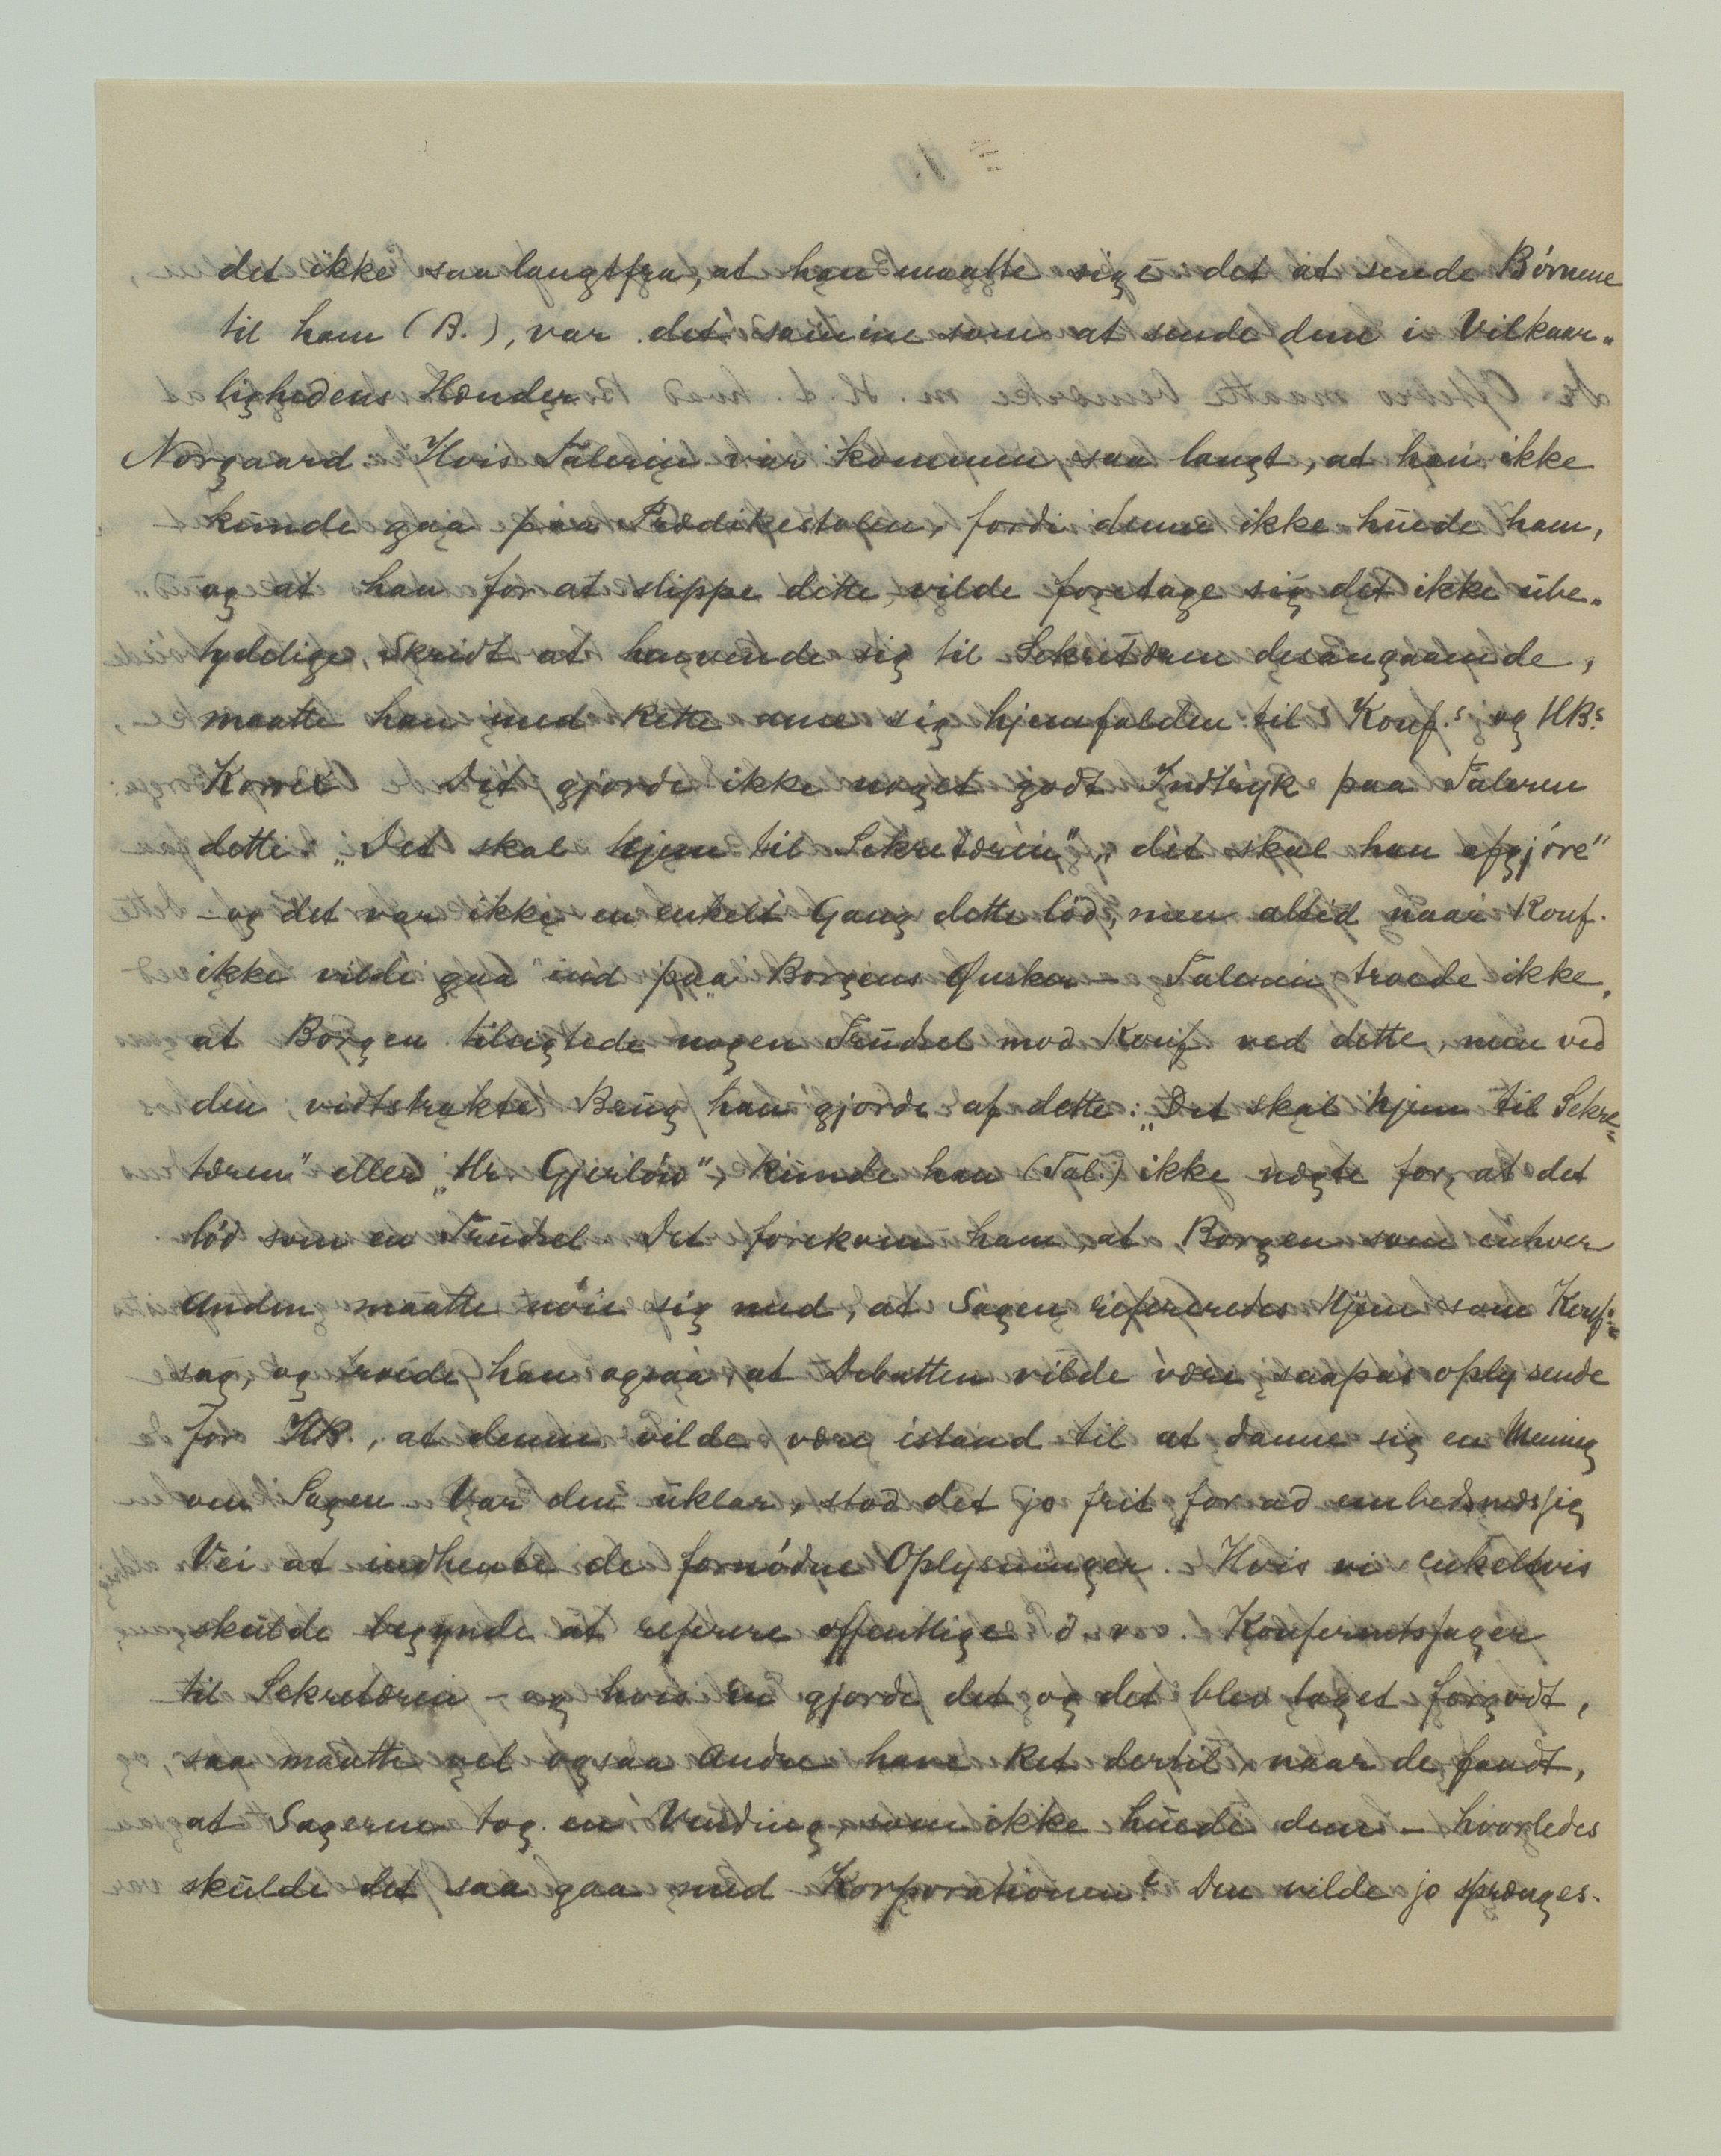 det ikke saa langt fra, at han maatte sige det at sende Börnene
til ham (B.), var det samme som at sende dem i Vilkaar„
lighedens Hænder
Nörgaard. Hvis Taleren var kommen saa langt, at han ikke
kunde gaa paa Prædikestolen, fordi denne ikke huede ham,
og at han for at slippe dette, vilde foretage sig det ikke ube„
tydelige Skridt at henvende sig til Sekretæren desangaaende,
maatte han med Rette anse sig hjemfalden til Konf.s og HB.s
Korrex Det gjorde ikke noget godt Indtryk paa Taleren
dette: „Det skal hjem til Sekretæren", „det skal han afgjöre"
– og det var ikke en enkelt Gang dette löd, men altid naar Konf.
ikke vilde gaa ind paa Borgens Ønsker – Taleren troede ikke,
at Borgen tilsigtede nogen Trudsel mod Konf. ved dette, men ved
den vidtstrakte Brug han gjorde af dette: „Det skal hjem til Sekre„
tæren" eller „Hr Gjerlöw", kunde han (Tal.) ikke nægte for, at det
löd som en Trudsel Det forekom ham, at Borgen som enhver
Anden maatte nöie sig med, at Sagen refereredes hjem som Konf.„
sag, og troede han ogsaa, at Debatten vilde være saapas oplysende
for HB., at denne vilde være istand til at danne sig en Mening
om Sagen Var den uklar, stod det jo frit for ad embedsmæssig
Vei at indhente de fornödne Oplysninger. Hvis vi enkeltvis
skulde begynde at referere offentlige d. v. s. Konferentssager
til Sekretæren – og hvis En gjorde det, og det blev taget forgodt,
saa maatte vel ogsaa Andre have Ret dertil, naar de fandt,
at Sagerne tog en Vending, som ikke huede dem – hvorledes
skulde det saa gaa med Korporationen? Den vilde jo sprænges.